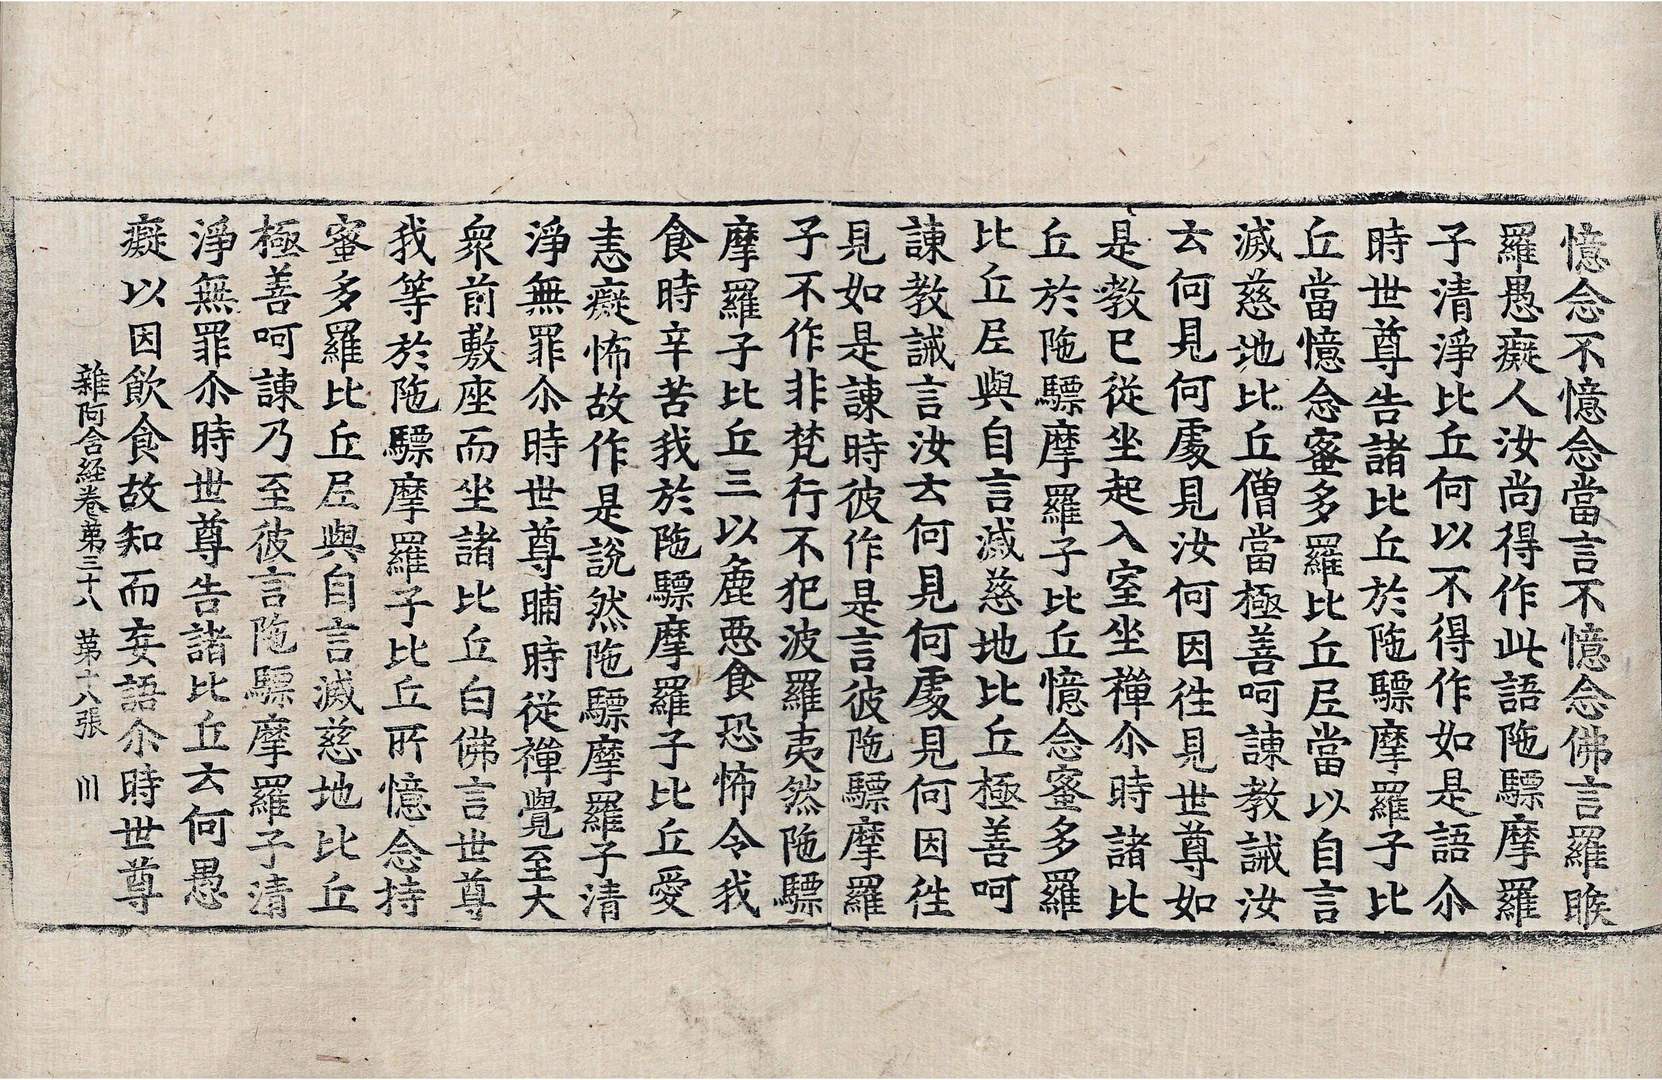 憶念不憶念當言不憶念佛言羅睺
羅愚癡人汝尚得作此語陁驃摩羅
子清淨比丘何以不得作如是語尒
時世尊告諸比丘於陁驃摩羅子比
丘當憶念蜜多羅比丘尼當以自言
滅慈地比丘僧當極善呵諫教誡汝
去何見何處見汝何因往見世尊如
是教已從坐起入室坐禪尒時諸比
丘於陁驃摩羅子比丘憶念蜜多羅
比丘尼與自言滅慈地比丘極善呵
諫教誡言汝去何見何處見何因往
見如是諫時彼作是言彼陁驃摩羅
子不作非梵行不犯波羅夷然陁驃
摩羅子比丘三以麁惡食恐怖令我
食時辛苦我於陁驃摩羅子比丘愛
恚癡怖故作是說然陁驃摩羅子清
淨無罪尒時世尊晡時從禪覺至大
衆前敷座而坐諸比丘白佛言世尊
我等於陁驃摩羅子比丘所憶念持
蜜多羅比丘尼與自言滅慈地比丘
極善呵諫乃至彼言陁驃摩羅子清
淨無罪尒時世尊告諸比丘去何愚
癡以因飲食故知而妄語尒時世尊
雜阿含経卷苐三十八 苐十八張 川